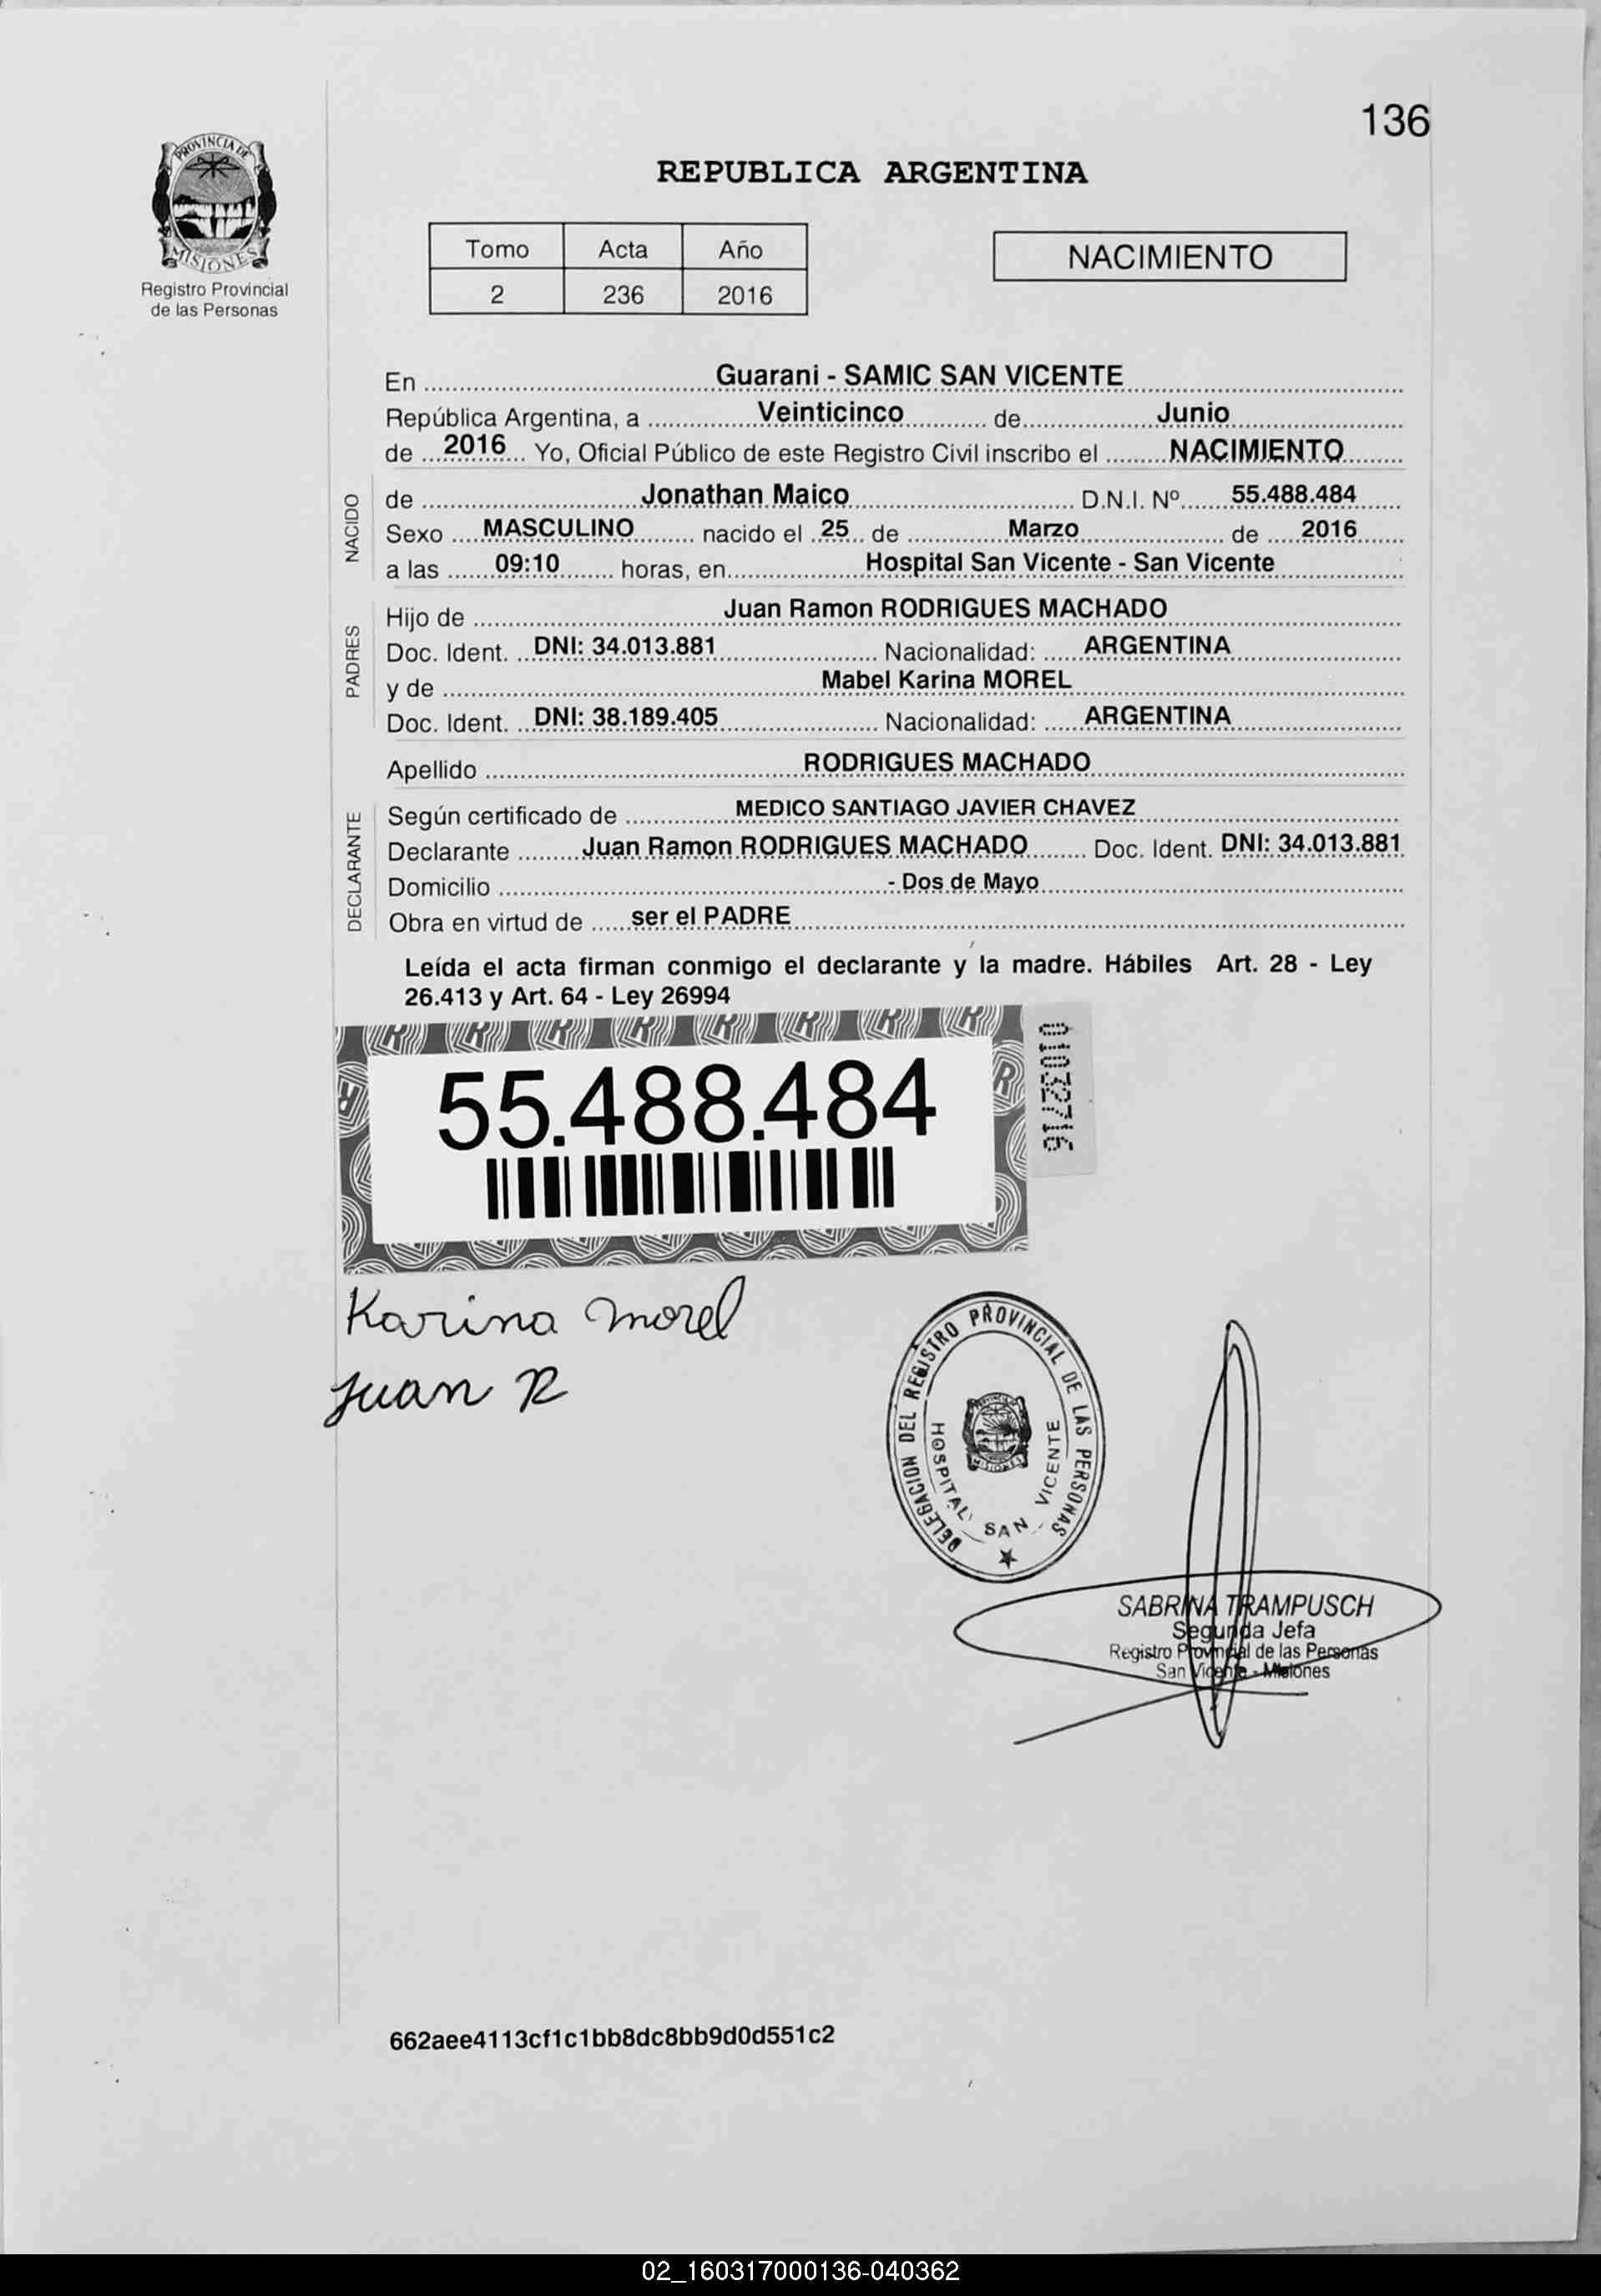 136
PROVINCIA DE
MISIONES
Registro Provincial
de las Personas
REPUBLICA ARGENTINA
Tomo Acta Año
2 236 2016
NACIMIENTO
En Guarani - SAMIC SAN VICENTE
República Argentina, a Veinticinco de Junio
de 2016 Yo, Oficial Público de este Registro Civil inscribo el NACIMIENTO
NACIDO
de Jonathan Maico D.N.I. Nº 55.488.484
Sexo MASCULINO nacido el 25 de Marzo de 2016
a las 09:10 horas, en Hospital San Vicente - San Vicente
PADRES
Hijo de Juan Ramon RODRIGUES MACHADO
Doc. Ident. DNI: 34.013.881 Nacionalidad: ARGENTINA
y de Mabel Karina MOREL
Doc. Ident. DNI: 38.189.405 Nacionalidad: ARGENTINA
Apellido RODRIGUES MACHADO
DECLARANTE
Según certificado de MEDICO SANTIAGO JAVIER CHAVEZ
Declarante Juan Ramon RODRIGUES MACHADO Doc. Ident. DNI: 34.013.881
Domicilio - Dos de Mayo
Obra en virtud de ser el PADRE
Leída el acta firman conmigo el declarante y la madre. Hábiles Art. 28 - Ley
26.413 y Art. 64 - Ley 26994
55.488.484
Karina Morel
Juan R
DELEGACION DEL REGISTRO PROVINCIAL DE LAS PERSONAS
HOSPITAL SAN VICENTE
SABRINA TRAMPUSCH
Segunda Jefa
Registro Provincial de las Personas
San Vicente - Misiones
662aee4113cf1c1bb8dc8bb9d0d551c2
02_160317000136-040362